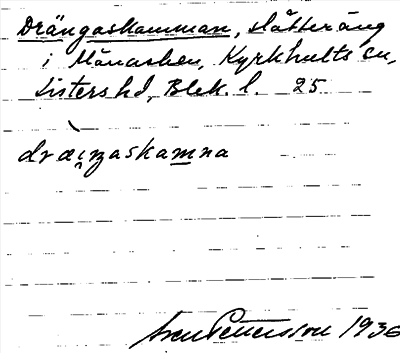 Drängaskamman, slåtteräng
i Månasken, Kyrkhults sn,
Listers hd, Blek. l. 25
dræi̯ŋaskamna
Sven Pettersson 1936